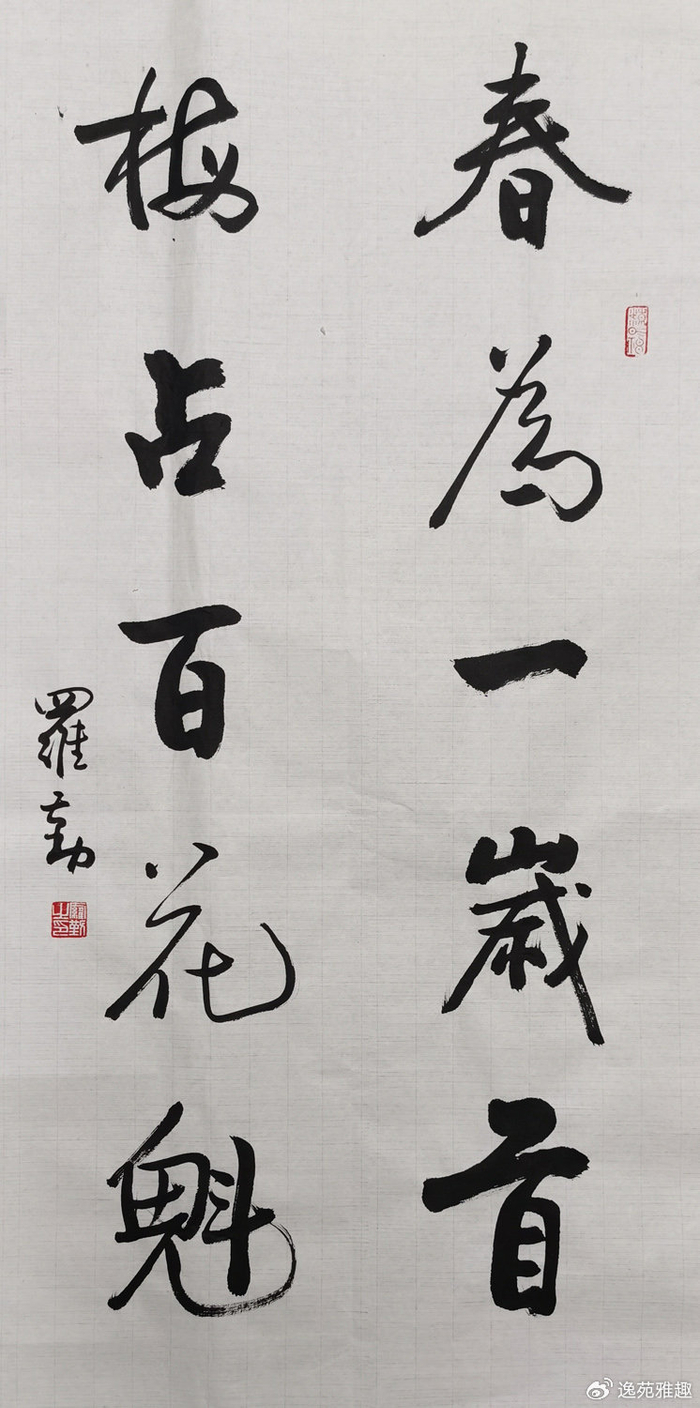 春為一歲首
梅占百花魁
羅勤
羅勤之印
逸苑雅趣